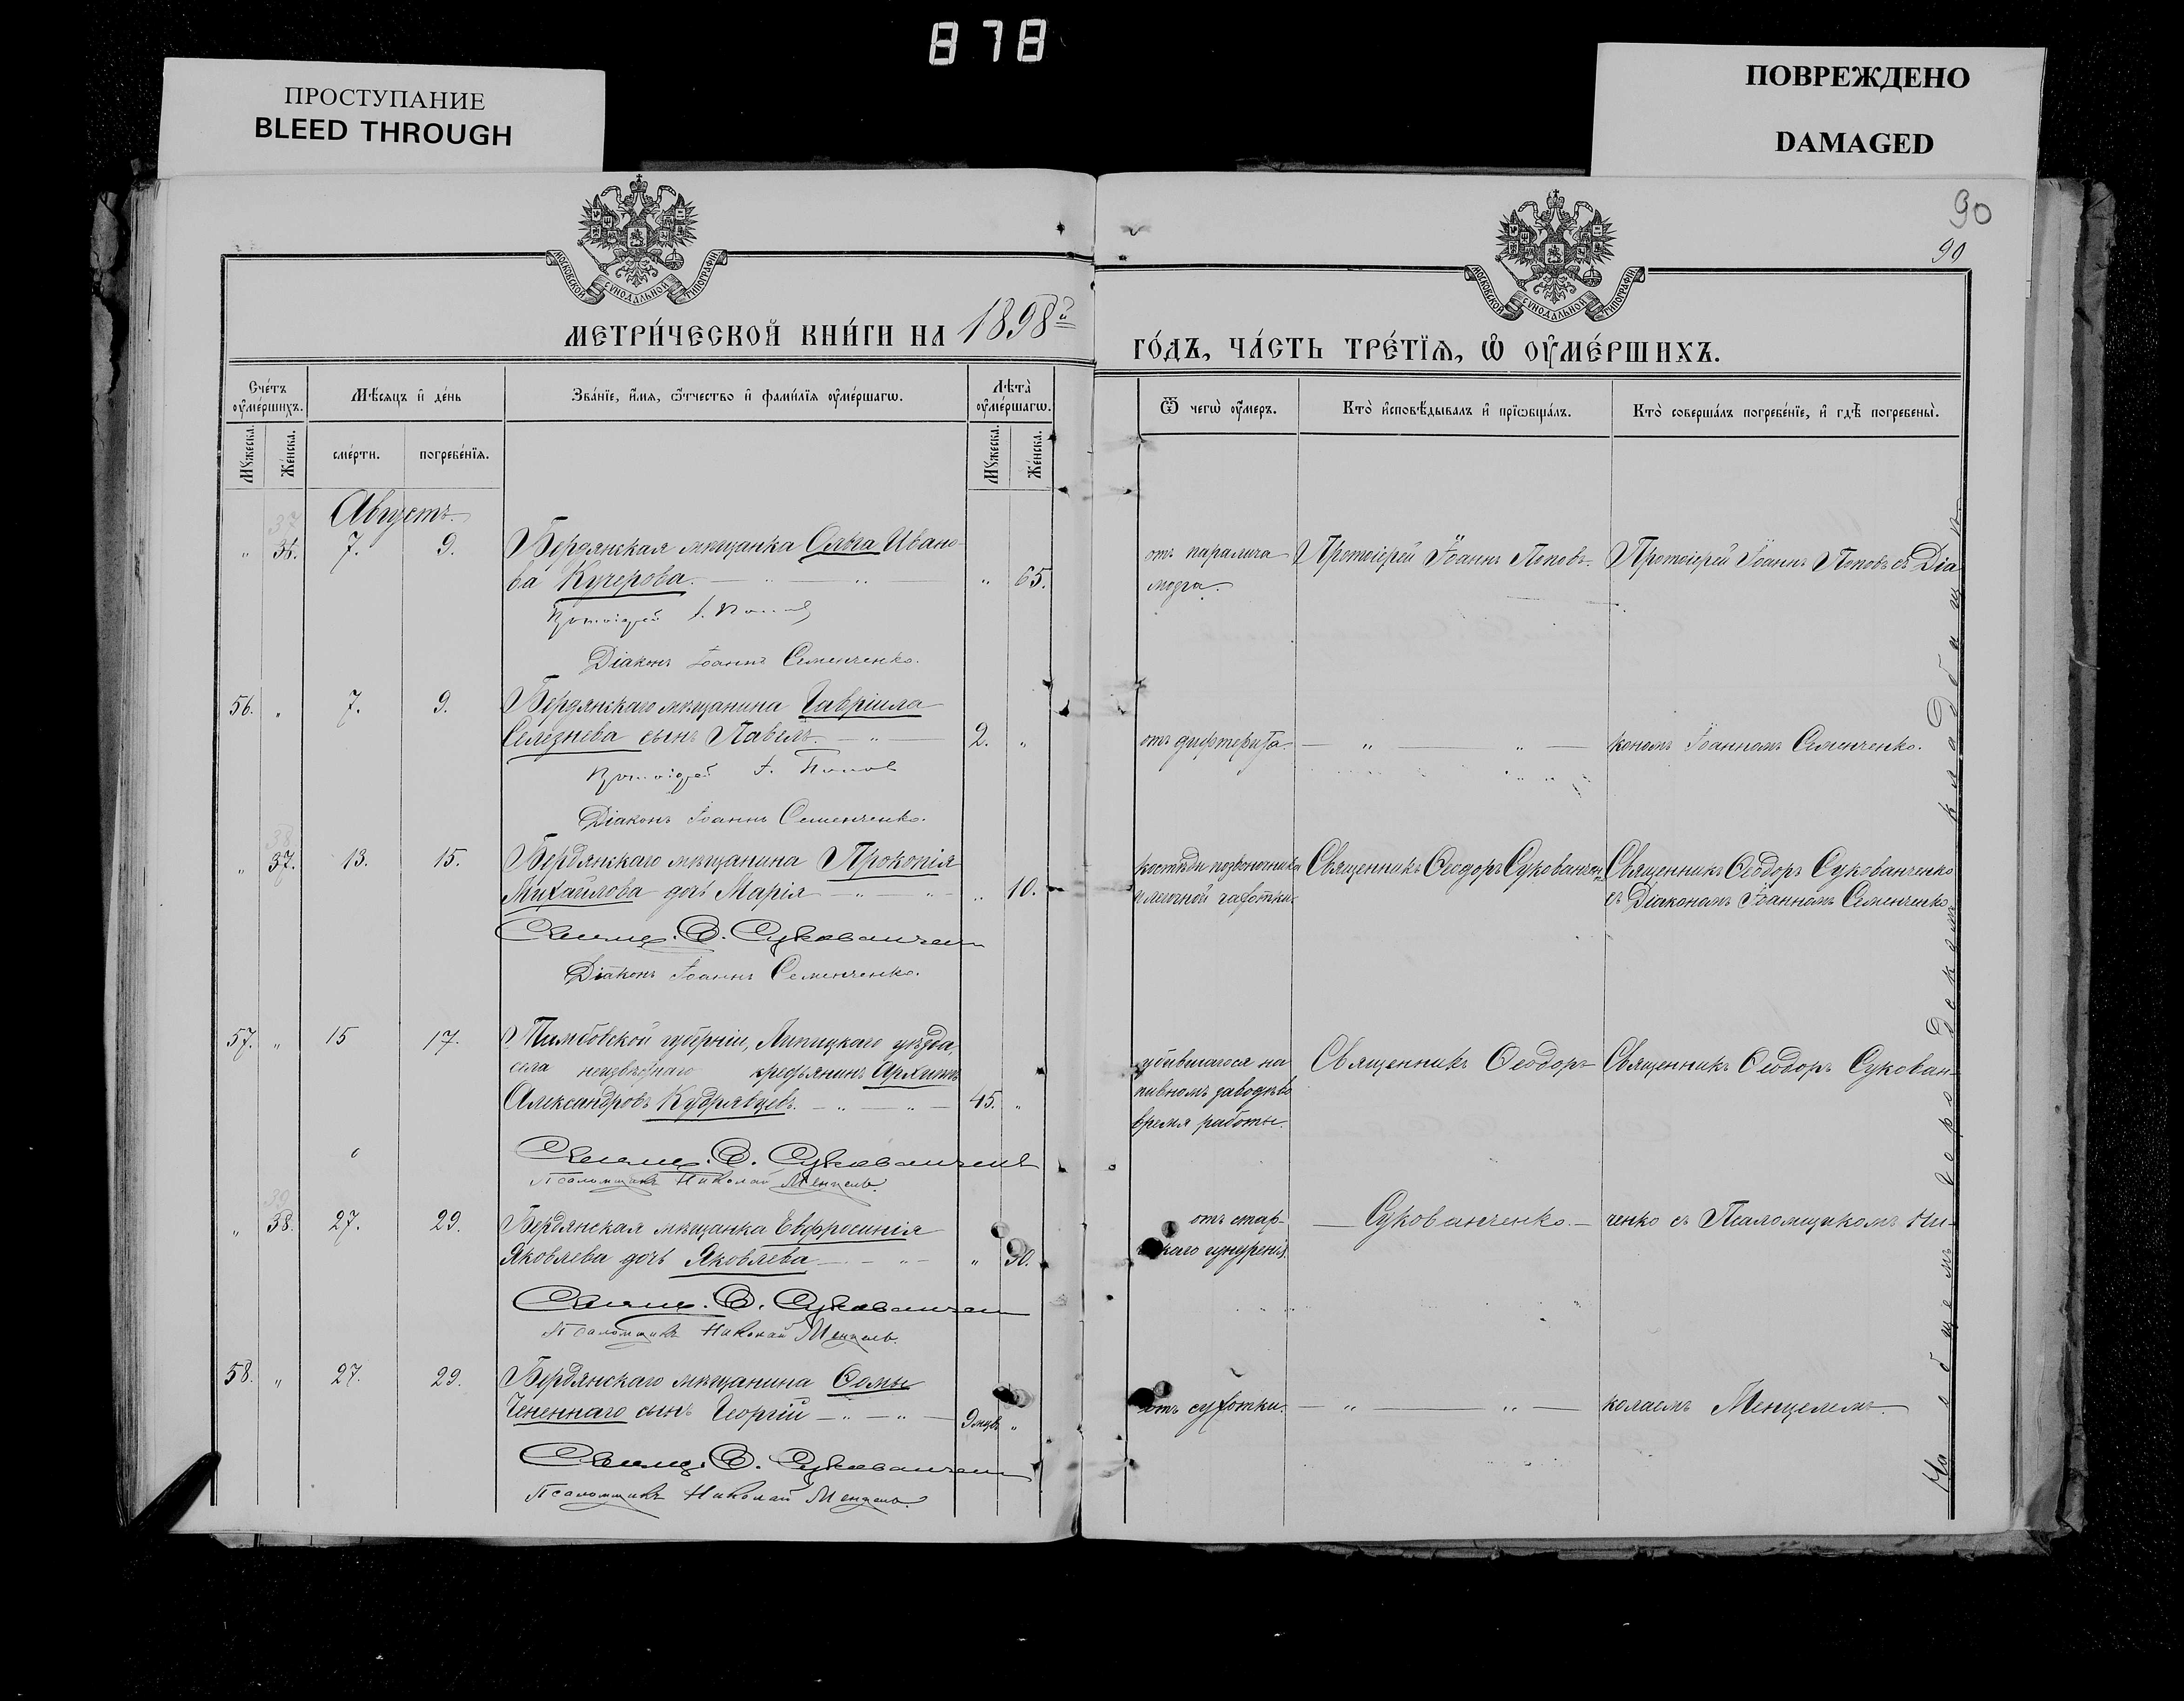 878
ПРОСТУПАНИЕ
BLEED THROUGH
ПОВРЕЖДЕНО
DAMAGED
90
90
МОСКОВСКОЙ СѴНОДАЛЬНОЙ ТИПОГРАФІИ
МОСКОВСКОЙ СѴНОДАЛЬНОЙ ТИПОГРАФІИ
МЕТРИ́ЧЕСКОЙ КНИ́ГИ НА 1898й
ГО́ДЪ, ЧА́СТЬ ТРЕ́ТЇѦ, Ѡ҆ ОУ҆МЕ́РШИХЪ.
Сче́тъ оу҆ме́ршихъ.
Мѣ́сяцъ и҆ де́нь
Зва́нїе, и҆́мѧ, ѻ҆́тчество и҆ фами́лїѧ оу҆ме́ршагѡ.
Лѣта̀ оу҆ме́ршагѡ.
Ѿ чегѡ̀ оу҆́меръ.
Кто̀ и҆сповѣ́дывалъ и҆ прїѡбща́лъ.
Кто̀ соверша́лъ погребе́нїе, и҆ гдѣ̀ погребены̀.
Мꙋ́жеска.
Же́нска.
сме́рти.
погребе́нїѧ.
Мꙋ́жеска.
Же́нска.
Августъ.
37
" 36. 7. 9. Бердянская мѣщанка Ольга Ивано-
ва Кучерова. " 65.
Протоіерей І. Поповъ
Діаконъ Іоаннъ Семенченко.
отъ паралича
мозга.
Протоіерей Іоаннъ Поповъ.
Протоіерей Іоаннъ Поповъ съ Діа-
56. " 7. 9. Бердянскаго мѣщанина Гавріила
Селезнева сынъ Павелъ. 2. "
Протоіерей І. Попов
Діаконъ Іоаннъ Семенченко.
отъ дифтерита.
кономъ Іоанномъ Семенченко.
38
" 37. 13. 15. Бердянскаго мѣщанина Прокопія
Михайлова дочь Марія " 10.
Священ. Ѳ. Сукованчен
Діаконъ Іоаннъ Семенченко.
костѣди позвоночника
и легочной чахотки.
Священникъ Ѳеодоръ Сукованчен
Священникъ Ѳеодоръ Сукованченко
съ Діакономъ Іоанномъ Семенченко
57. " 15 17. Тамбовской губерніи, Липицкаго уѣзда,
села неизвѣстнаго крестьянинъ Архипъ
Александровъ Кудрявцевъ. 45. "
Священ. Ѳ. Сукованченко
Псаломщикъ Николай Менцель.
убившагося на
пивномъ заводѣ во
время работы.
Священникъ Ѳеодоръ
Священникъ Ѳеодоръ Сукован-
39
" 38. 27. 29. Бердянская мѣщанка Евфросинія
Яковлева дочь Яковлева " 90.
Священ. Ѳ. Сукованчен
Псаломщикъ Николай Менцель.
отъ стар-
ческаго изнуренія.
Сукованченко.
ченко съ Псаломщикомъ Ни-
58. " 27. 29. Бердянскаго мѣщанина Ѳомы
Чененнаго сынъ Георгій 9 мцв. "
Священ. Ѳ. Сукованчен
Псаломщикъ Николай Менцель.
отъ сухотки.
колаемъ Менцелемъ.
На общемъ городскомъ кладбищѣ.